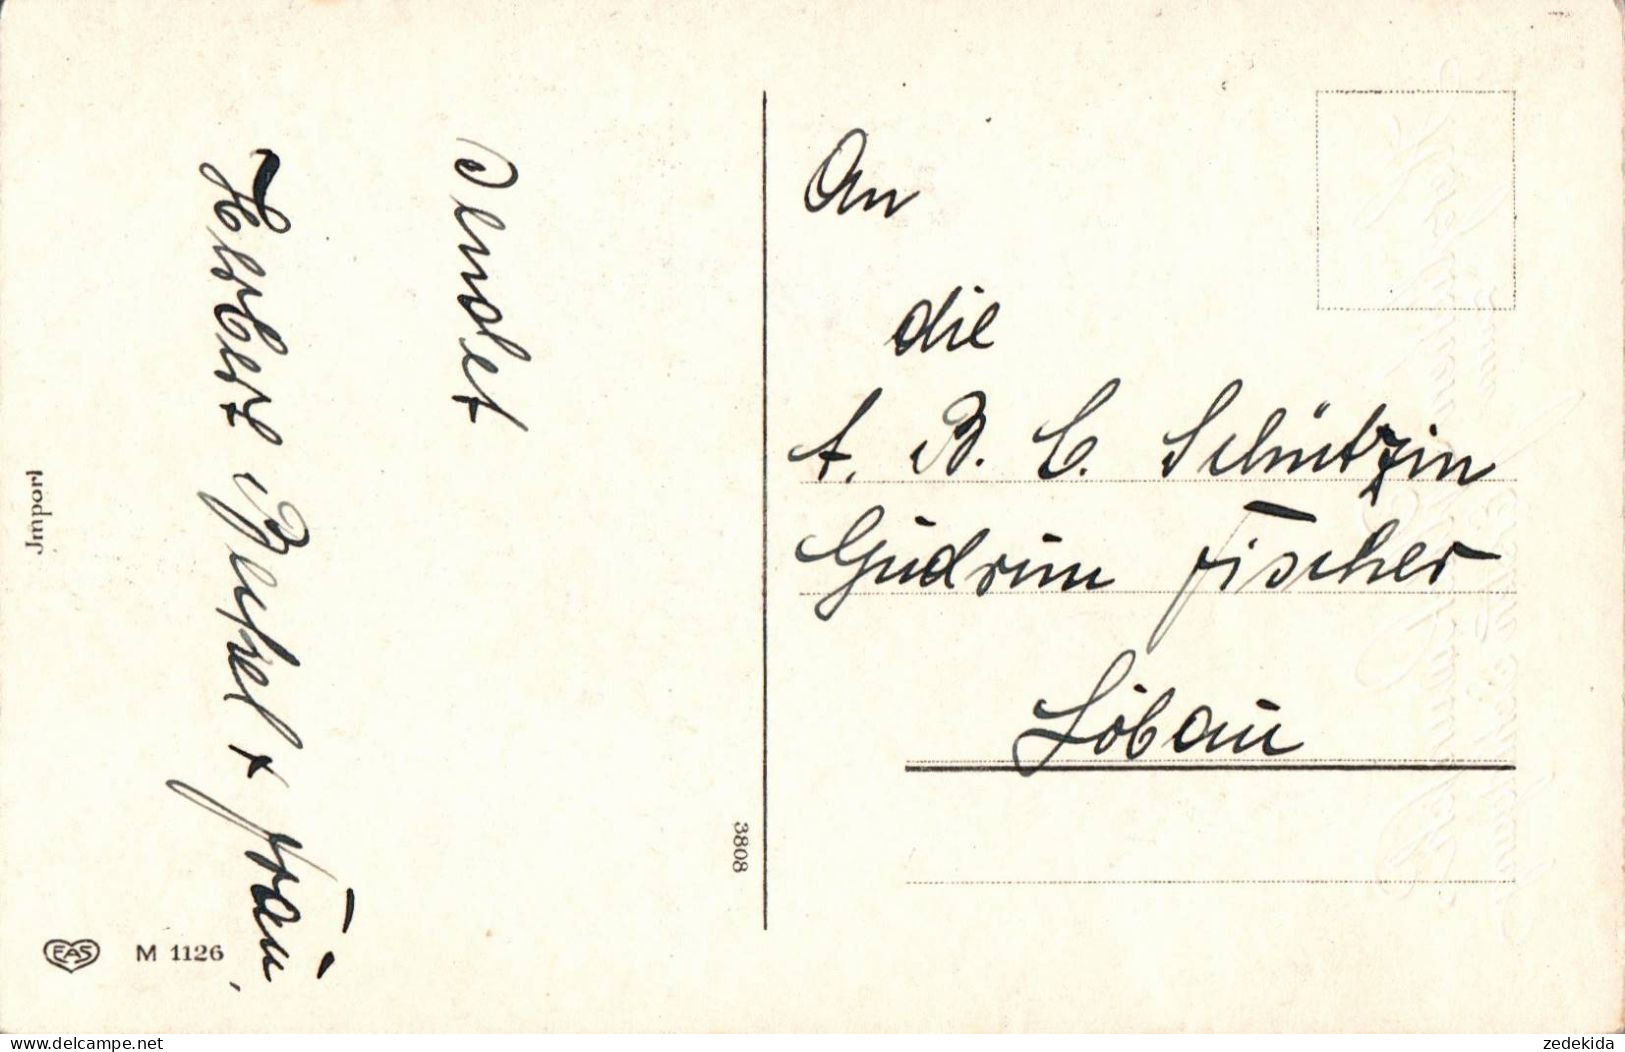 sendet
Herbert
+ Frau.
An
die
A. B. C. Schützin
Gudrun Fischer
Löbau
Jmport
3808
EAS
M 1126
www.delcampe.net
zedekida